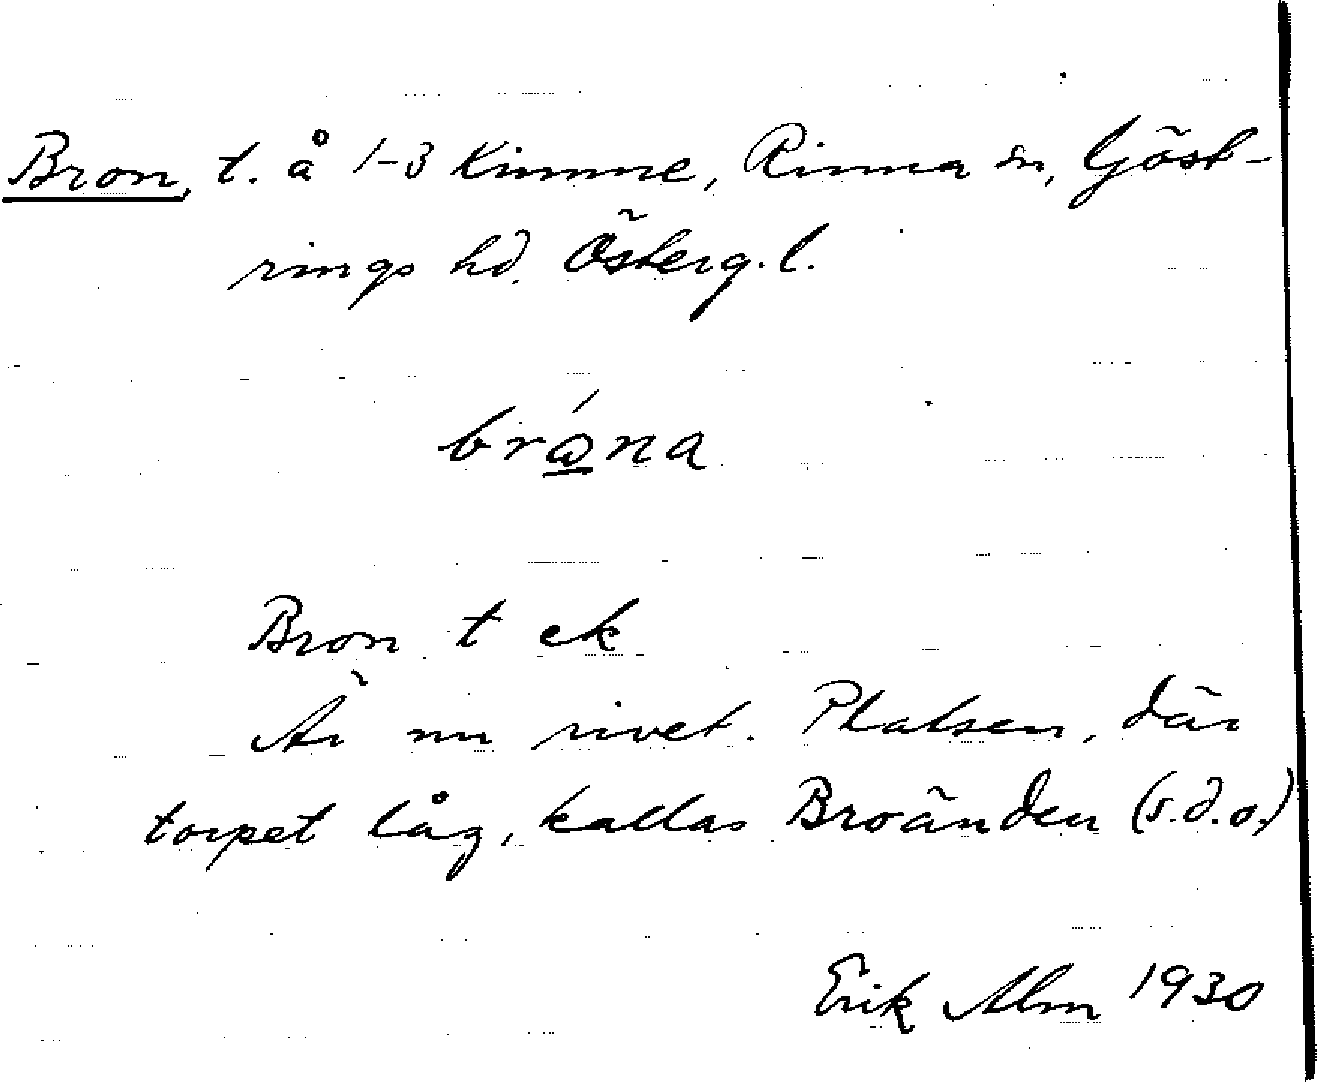 Bron, t. å 1-3 Kimme, Rinna sn, Göst-
rings hd. Österg. l.
brώ̲na
Bron t ek
Är nu rivet. Platsen, där
torpet låg, kallas Broänden (s.d.o.)
Erik Alm 1930